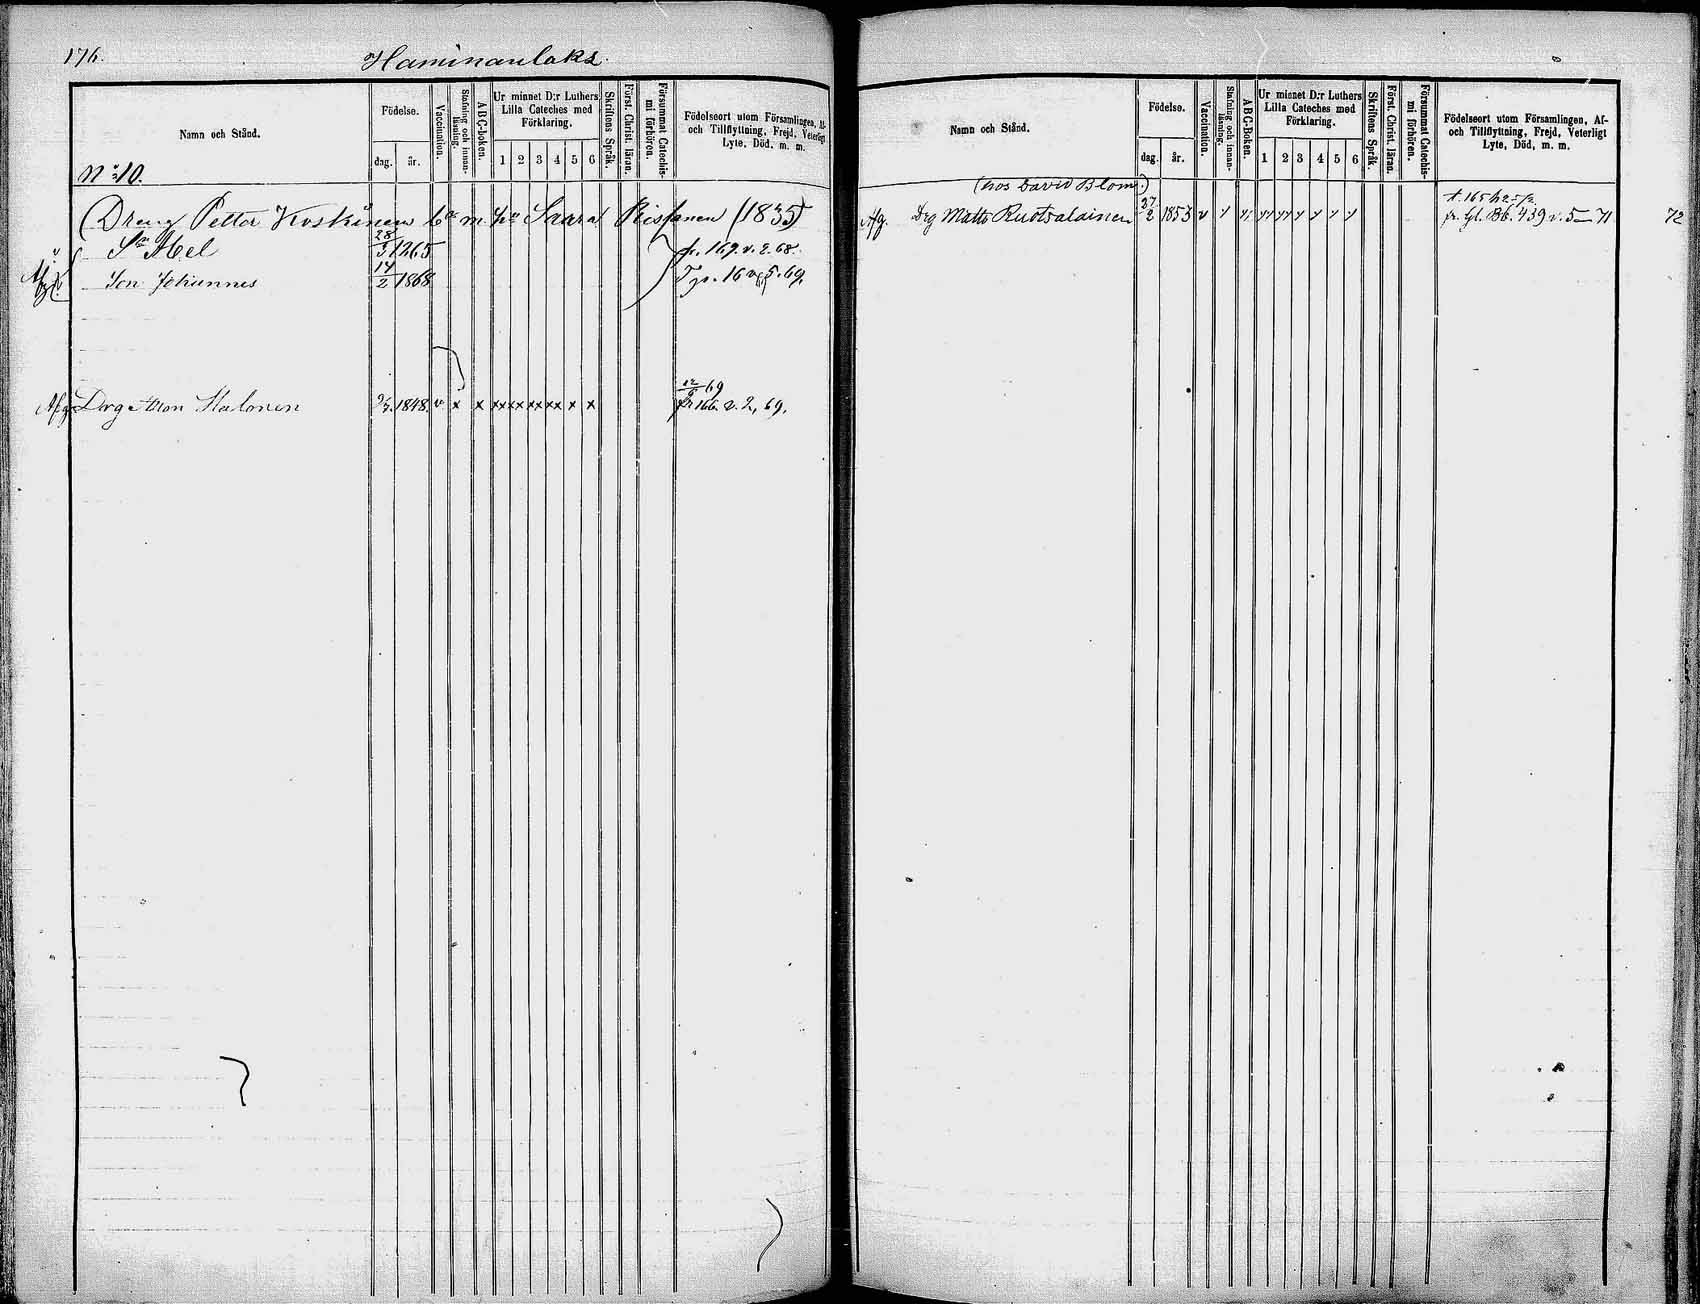 176.
Haminanlaks.
Namn och Stånd.
Födelse.
dag. år.
Vaccination.
Stafning och innan-läsning.
ABC-boken.
Ur minnet D:r Luthers
Lilla Cateches med
Förklaring.
1 2 3 4 5 6
Skriftens Språk.
Först. Christ. läran.
Försummat Catechis-
mi förhören.
Födelseort utom Församlingen, Af-
och Tillflyttning, Frejd, Veterligt
Lyte, Död, m. m.
No 10.
(Dreng Petter Koskinens m. Saara Rissanen (1835)
Sn Abel 28/3 1865 fr. 169. v. 2. 68.
Son Johannes 14/2 1868 69.
12/ 69
Afg. Drg Mon Halonen 9/7. 1848. v x x xx xx xx xx x x fr 166. v. 2, 69.
Namn och Stånd.
Födelse.
dag. år.
Vaccination.
Stafning och innan-läsning.
ABC-Boken.
Ur minnet D:r Luthers
Lilla Cateches med
Förklaring.
1 2 3 4 5 6
Skriftens Språk.
Först. Christ. läran.
Försummat Catechis-
mi förhören.
Födelseort utom Församlingen, Af-
och Tillflyttning, Frejd, Veterligt
Lyte, Död, m. m.
(hos David Blom.)
t. 165
Afg. Drg Matts Ruotsalainen 27/2 1853 v fr. gl. Bb. 439 v. 5 — 71 72